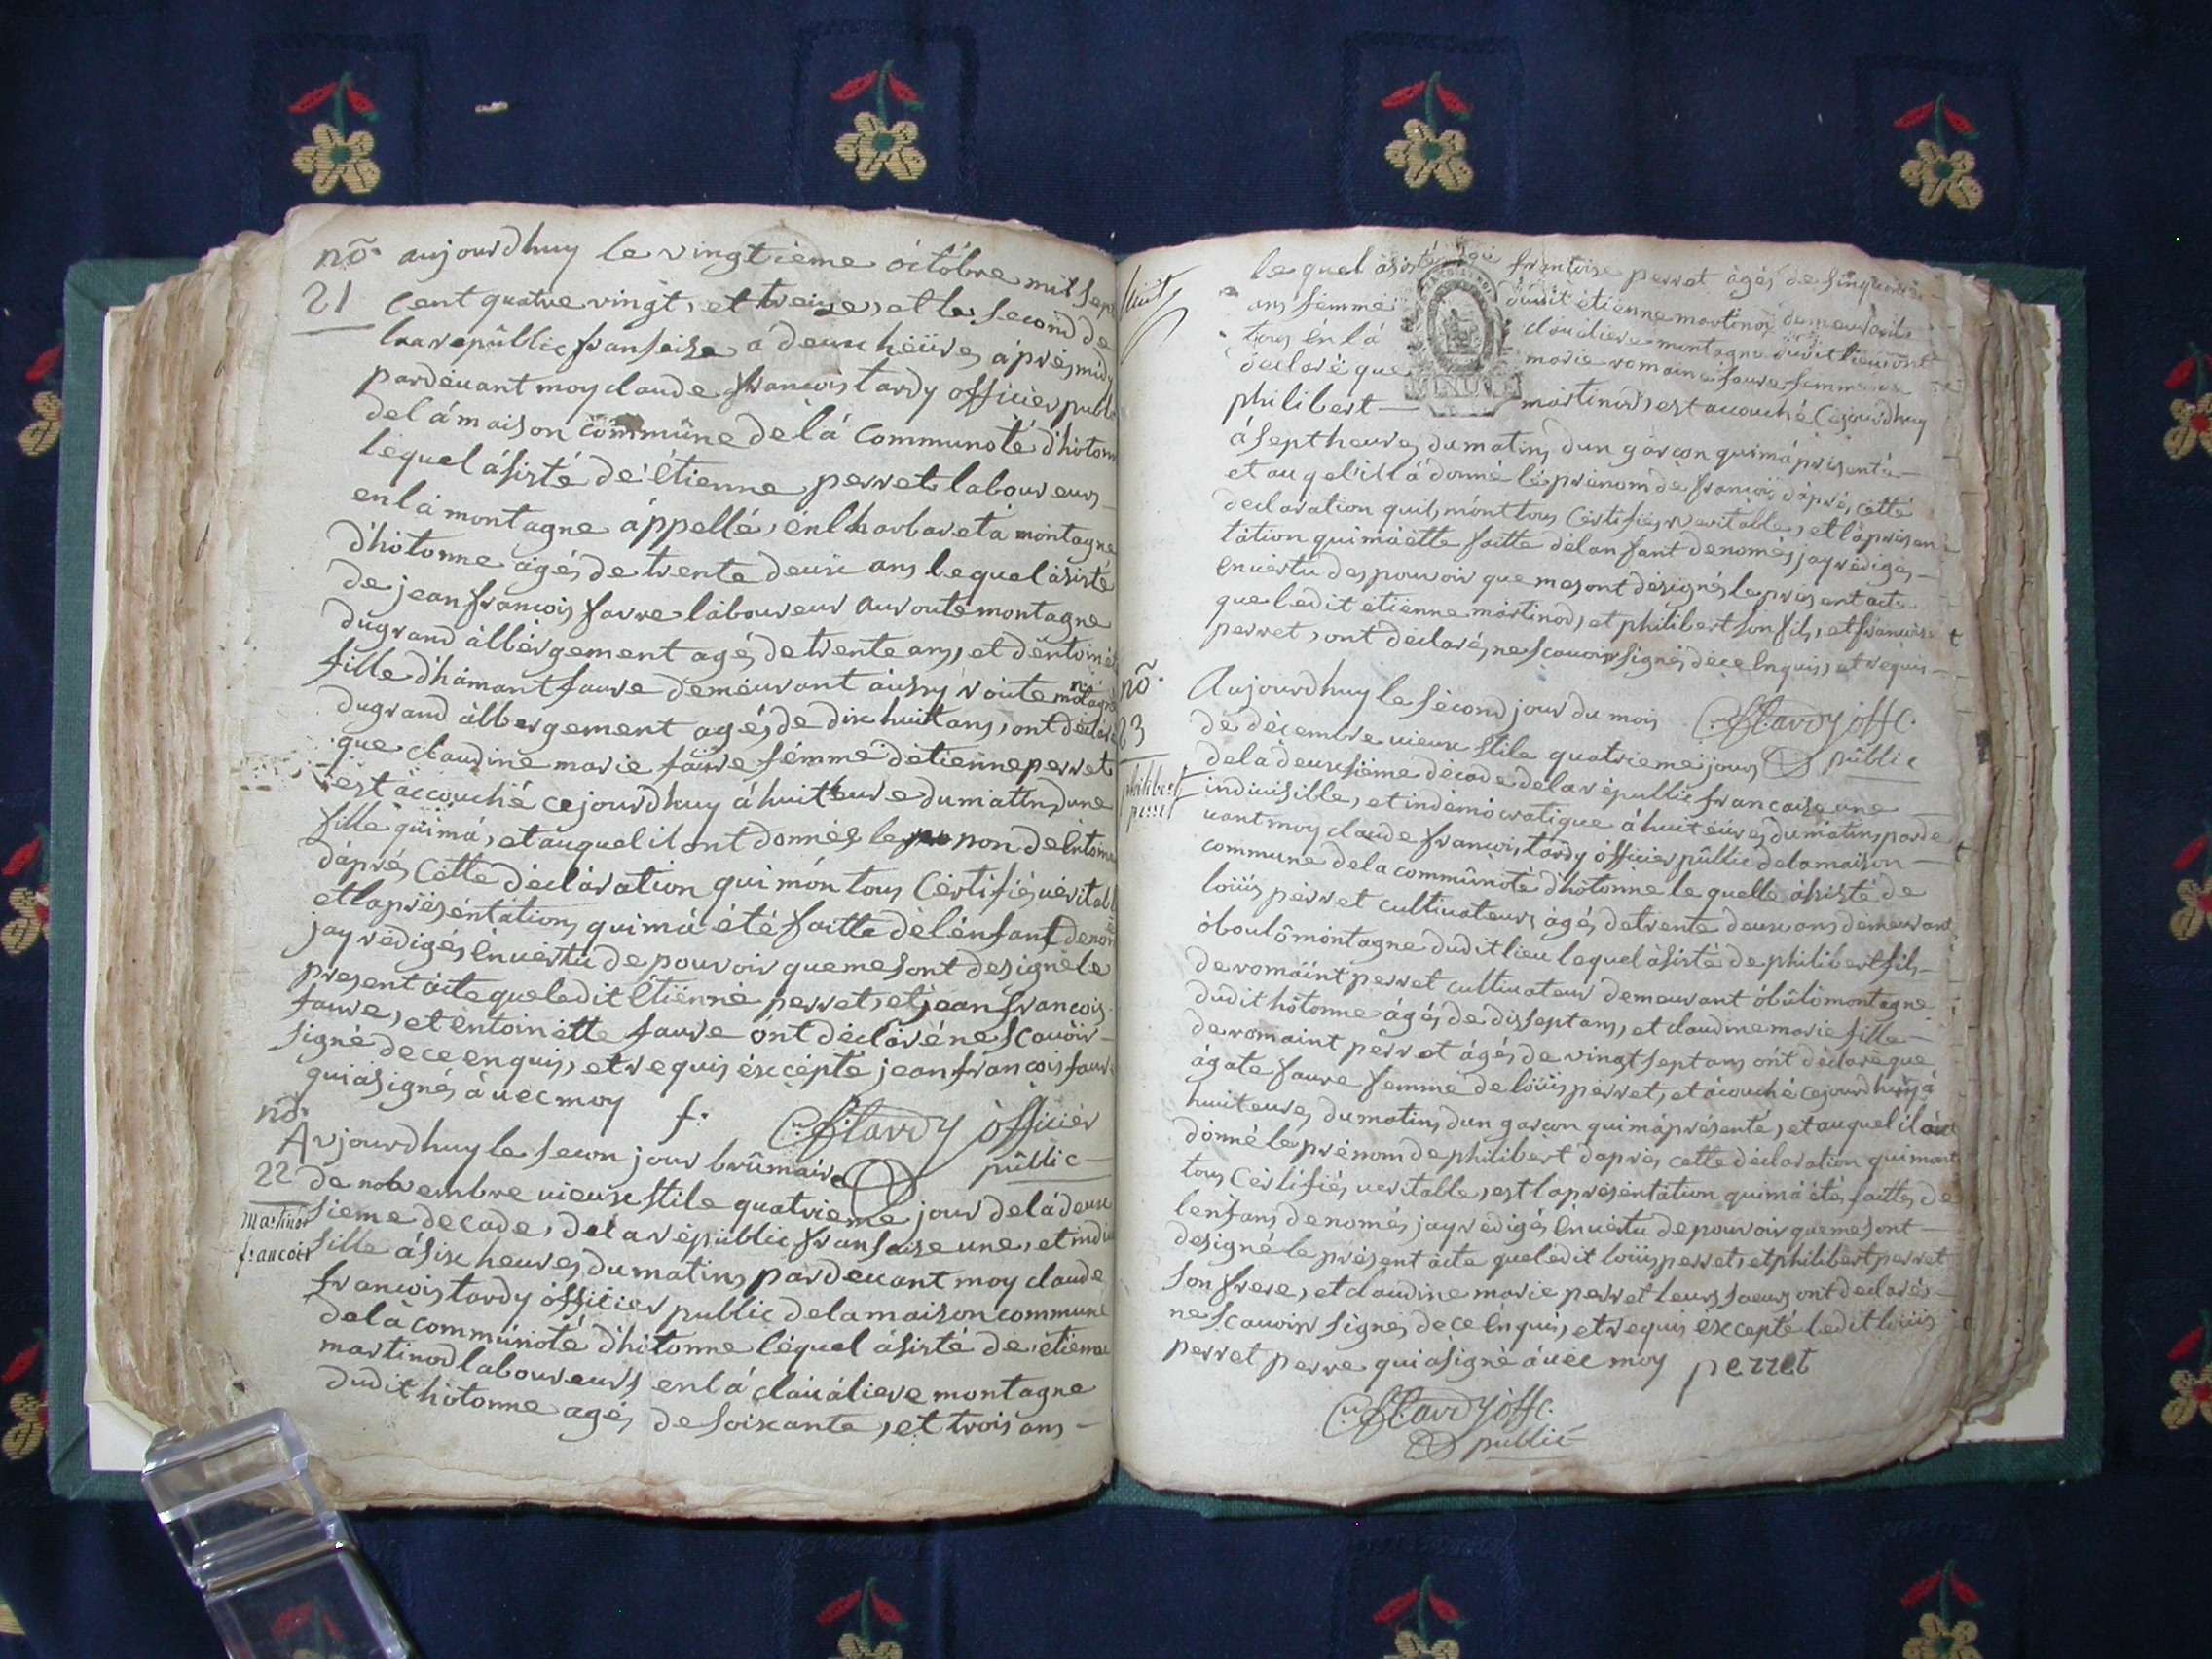 nõ. aujourdhuy le vingtieme octobre mil sept
21 cent quatre vingt, et treize, et le second de
la republic franseise a deux heûres aprés midy
pardevant moy claude francois tardy officier public
de la maison commûne de la communoté dhotonne
lequel asisté de étienne perret laboureurs
en la montagne appellé, en lharbareta montagne
dhotonne agés de trente deux ans lequel asisté
de jean francois favre laboureur au route montagne
du grand albergement agés de trente ans, et dentoinette
fille dhamant faure demeurant aussy route montagne
du grand albergement agés de dix huit ans, ont déclaré
que claudine marie faure fémme détienne perret
est accouché cejourdhuy á huit eure du matin, dune
fille qui má, et auquel il ont donnés le non de entoinette
dáprés cette déclaration qui món tous certifié véritable
et la preséntation, qui má été faitte de lénfant denomé
jay redigés en vértu de pouvoir que me sont designé le
present acte que ledit étiénne perret, et jean francois
faure, et entoinétte faure ont déclaré ne scavoir
signé de ce enquis, et requis excépté jean francois faure
qui a signés avec moy f. Cl. f. tardy officier
public
nõ. Aujourdhuy le secon jour brûmaire
22 de novembre vieux stile quatrieme jour de lá deux
martinod sieme decade, de la républic fransaise une, et indivi
francois sille á six heures du matin, pardevant moy claude
francois tardy officier public de la maison commune
de lá commûnoté dhotonne léquel asisté de étienne
martinod laboureurs en lá claválieve montagne
dudit hotonne agés de soixante, et trois ans
lequel asisté de francoise perret agés de sinquante
huit ans fémme dudit étienne martinod demeurant
tous én lá claudiere montagne dudit lieu ont
déclaré que marie romaine faure femme de
philibert martinod, est accouché cejourdhuy
á sept heures du matin, dun garcon qui má présenté
et auqel il lá donné lé prénom de francois dáprés, cette
declaration quil, mónt tous certifiés veritable, et la présen
tátion qui má étte faitte de lanfant denomés jay rédigés
en vértu des pouvoir que me sont désignés le présent acte
que ledit étienne martinod, et philibert son fils, et francoise
perret, ont declarés ne scavoir signés de ce enquis, et requis
Cl. f. tardy offc.
public
nõ. Aujourdhuy le sécond jour du mois
23 de décembre vieux stile quatrieme jour
philibert perret de la deuxsiéme décade de la républic francaise une
indivisible, et indémocratique á huit éures du matin, parde
vant moy claude francois tardy officier pûblic de la maison
commune de la commûnoté dhotonne le quelle ásisté de
loûis pérret cultivateurs ágés de trente deux ans demeurant
óboulô móntagne dudit lieu lequel ásisté de philibert fils
de romaint perret cultivateur demeurant óbûlô montagne
dudit hotonne ágés de disept ans, et claudine marie fille
de romaint perret ágés de vingt sept ans ónt déclaré que
ágate faure femme de loûis pérret, et acouché cejourdhuy á
huit eures du matin, dun garcon qui má présenté, et auquel il ont
donné le prénom de philibert dapres cette déclaration qui mont
tous certifiés veritable, est la présentation qui má étés faittes de
lenfans denomés jay rédigés en vértu de pouvoir que me sont
designé le présent acte que ledit loûis perret, et philibert perret
son frere, et claudine marie perret leurs soeurs ont declarés
ne scavoir signés de ce enquis, et requis éxcepté ledit loûis
perret perre qui a signé ávéc moy perret
Cl. f. tardy offc.
public